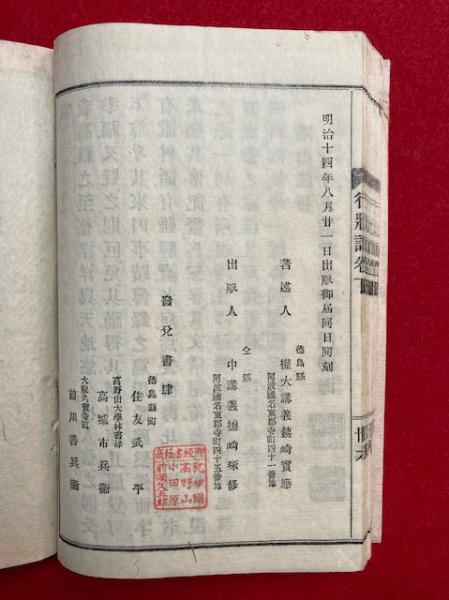 明治十四年八月廿一日出版御届同日開刻
徳島縣
著述人　權大講義鐡崎實應
阿波國名東郡寺町四十一番地
仝縣
出版人　中講義堀崎琢修
阿波國名東郡寺町四十五番地
發兌書肆
徳島
住友武平
高野山大學林書肆
高城市兵衛
大阪久寶寺町
前川善兵衛
高野山
小田原
行狀記卷下